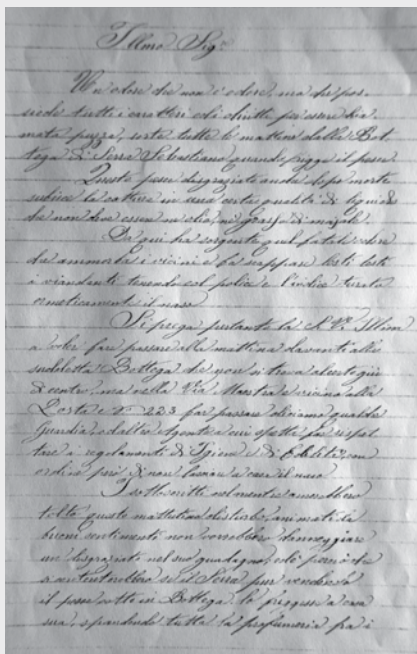 Illmo Sigr
Un odore che non è odore, ma che pos-
siede tutti i caratteri ed i diritti per essere chia
mata puzza, sorte tutte le mattine dalla Bot-
tega di Serra Sebastiano quando frigge il pesce.
Questo pesce disgraziato anche dopo morte
subisce la cottura in una certa qualità di liquido
che non deve essere nè olio, nè grasso di majale.
Da qui ha sorgente quel fatale odore
che ammorba i vicini e fa scappare lesti lesti
i viandanti tenendo col pollice e l'indice turato
ermeticamente il naso
Si prega pertanto la S. V. Illma
a voler fare passare alla mattina davanti alla
suddetta Bottega che non si trova al certo giù
di centro, ma nella Via Maestra e vicina alla
Posta e No 223 far passare diciamo qualche
Guardia, od altro Agente a cui spetta far rispet
tare i regolamenti di Igiene e di Edilità, con
ordine però di non lasciare a casa il naso.
I sottoscritti nel mentre amerebbero
tolto questo mattutino disturbo, animati da
buoni sentimenti non vorrebbero danneggiare
un disgraziato nel suo guadagno, ed è perciò che
s'accontenterebbero se il Serra pur vendendo
il pesce cotto in Bottega, lo friggesse a casa
sua, spandendo tutta la profumeria fra i